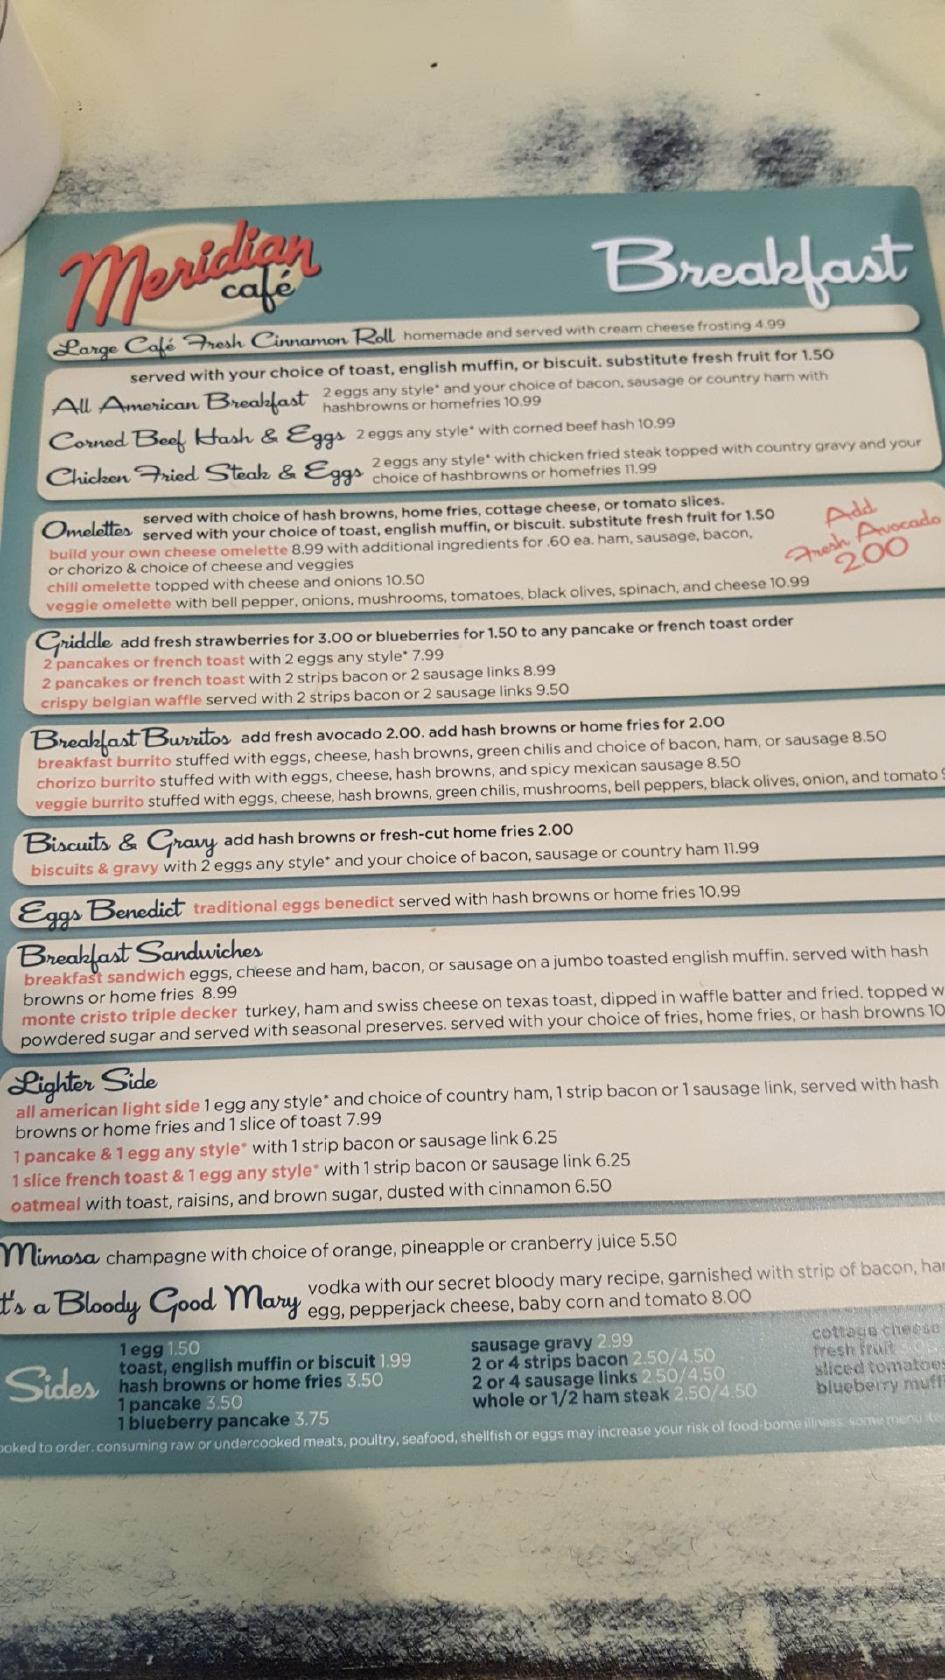 Meridian café
Breakfast
Large Café Fresh Cinnamon Roll homemade and served with cream cheese frosting 4.99
served with your choice of toast, english muffin, or biscuit. substitute fresh fruit for 1.50
All American Breakfast 2 eggs any style* and your choice of bacon, sausage or country ham with
hashbrowns or homefries 10.99
Corned Beef Hash & Eggs 2 eggs any style* with corned beef hash 10.99
Chicken Fried Steak & Eggs 2 eggs any style* with chicken fried steak topped with country gravy and your
choice of hashbrowns or homefries 11.99
Omelettes served with choice of hash browns, home fries, cottage cheese, or tomato slices.
served with your choice of toast, english muffin, or biscuit. substitute fresh fruit for 1.50
build your own cheese omelette 8.99 with additional ingredients for .60 ea. ham, sausage, bacon,
or chorizo & choice of cheese and veggies
chili omelette topped with cheese and onions 10.50
veggie omelette with bell pepper, onions, mushrooms, tomatoes, black olives, spinach, and cheese 10.99
Add
Fresh Avocado
2.00
Griddle add fresh strawberries for 3.00 or blueberries for 1.50 to any pancake or french toast order
2 pancakes or french toast with 2 eggs any style* 7.99
2 pancakes or french toast with 2 strips bacon or 2 sausage links 8.99
crispy belgian waffle served with 2 strips bacon or 2 sausage links 9.50
Breakfast Burritos add fresh avocado 2.00. add hash browns or home fries for 2.00
breakfast burrito stuffed with eggs, cheese, hash browns, green chilis and choice of bacon, ham, or sausage 8.50
chorizo burrito stuffed with with eggs, cheese, hash browns, and spicy mexican sausage 8.50
veggie burrito stuffed with eggs, cheese, hash browns, green chilis, mushrooms, bell peppers, black olives, onion, and tomato
Biscuits & Gravy add hash browns or fresh-cut home fries 2.00
biscuits & gravy with 2 eggs any style* and your choice of bacon, sausage or country ham 11.99
Eggs Benedict traditional eggs benedict served with hash browns or home fries 10.99
Breakfast Sandwiches
breakfast sandwich eggs, cheese and ham, bacon, or sausage on a jumbo toasted english muffin. served with hash
browns or home fries 8.99
monte cristo triple decker turkey, ham and swiss cheese on texas toast, dipped in waffle batter and fried. topped w
powdered sugar and served with seasonal preserves. served with your choice of fries, home fries, or hash browns 10
Lighter Side
all american light side 1 egg any style* and choice of country ham, 1 strip bacon or 1 sausage link, served with hash
browns or home fries and 1 slice of toast 7.99
1 pancake & 1 egg any style* with 1 strip bacon or sausage link 6.25
1 slice french toast & 1 egg any style* with 1 strip bacon or sausage link 6.25
oatmeal with toast, raisins, and brown sugar, dusted with cinnamon 6.50
Mimosa champagne with choice of orange, pineapple or cranberry juice 5.50
t's a Bloody Good Mary vodka with our secret bloody mary recipe, garnished with strip of bacon, har
egg, pepperjack cheese, baby corn and tomato 8.00
Sides
1 egg 1.50
toast, english muffin or biscuit 1.99
hash browns or home fries 3.50
1 pancake 3.50
1 blueberry pancake 3.75
sausage gravy 2.99
2 or 4 strips bacon 2.50/4.50
2 or 4 sausage links 2.50/4.50
whole or 1/2 ham steak 2.50/4.50
cottage cheese
fresh fruit
sliced tomatoes
blueberry muff
ooked to order. consuming raw or undercooked meats, poultry, seafood, shellfish or eggs may increase your risk of food-borne illness. some menu ite